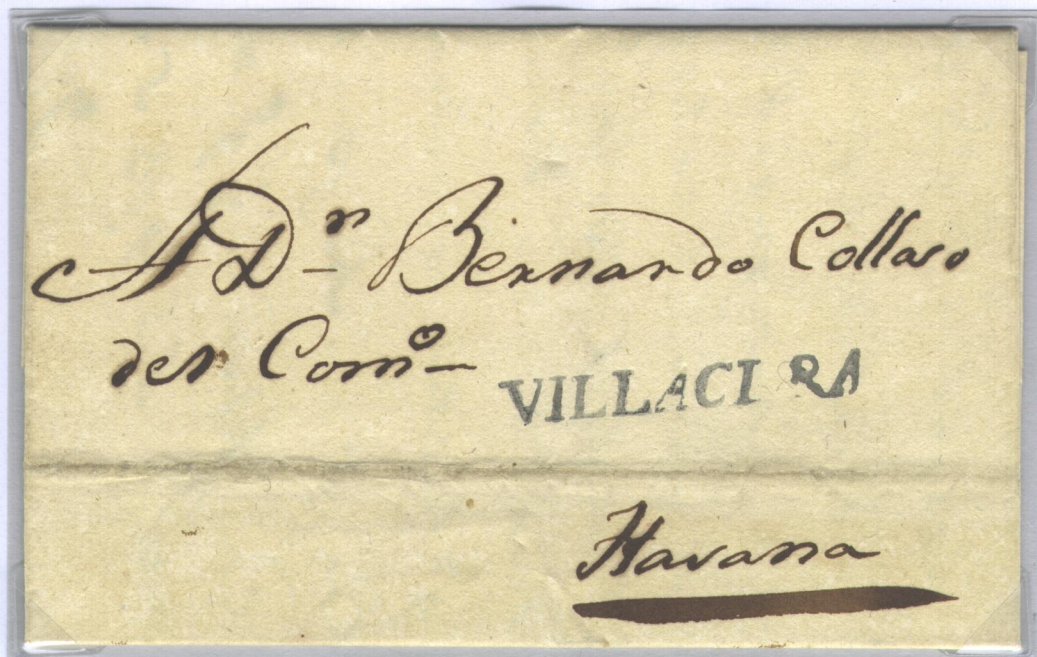 A Dn Bernardo Collaso
del Como
VILLACI RA
Havana